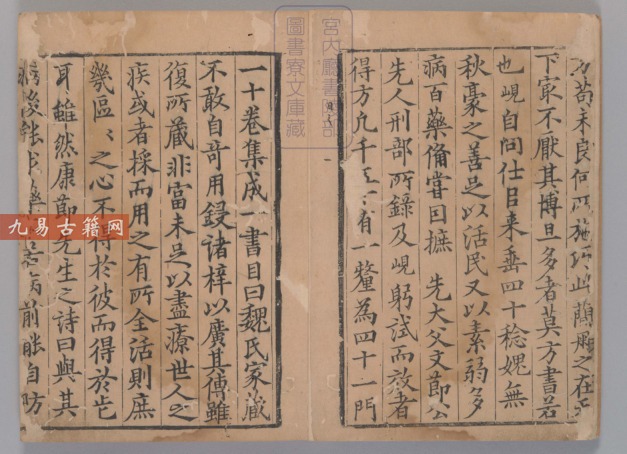 方苟未良何所施巧此簡冊之在天
下寔不厭其博且多者莫方書若
也峴自筮仕以来垂四十稔媿無
秋豪之善足以活民又以素弱多
病百藥備嘗因摭 先大父文節公
先人刑部所錄及峴躬試而效者
得方凡千五十有一釐為四十一門
一十卷集成一書目曰魏氏家藏
不敢自奇用鋟諸梓以廣其傳雖
復所藏非富未足以盡療世人之
疾或者採而用之有所全活則庶
幾區〻之心不得於彼而得於此
耳雖然康節先生之詩曰與其
病後能求藥不若病前能自防
宮内廳書陵部
圖書寮文庫藏
九易古籍网